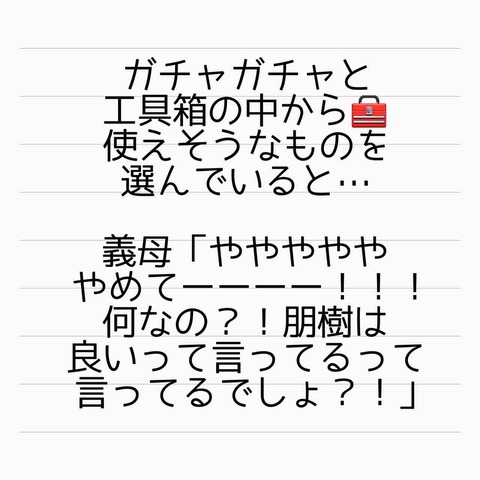 ガチャガチャと
工具箱の中から🧰
使えそうなものを
選んでいると…
義母「ややややや
やめてーーーー！！！
何なの？！朋樹は
良いって言ってるって
言ってるでしょ？！」